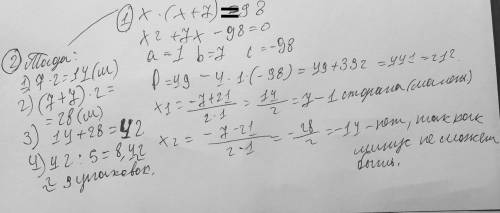 ① x · (x + 7) = 98
x² + 7x – 98 = 0
a = 1 b = 7 c = –98
D = 49 – 4 · 1 · (–98) = 49 + 392 = 441 = 21²
x₁ = (–7 + 21) / (2 · 1) = 14 / 2 = 7 – 1 сторона (малая)
x₂ = (–7 – 21) / (2 · 1) = –28 / 2 = –14 – нет, так как
минус не может
быть.
② Тогда:
1) 7 · 2 = 14 (м)
2) (7 + 7) · 2 =
= 28 (м)
3) 14 + 28 = 42
4) 42 : 5 = 8,42
≈ 9 упаковок.